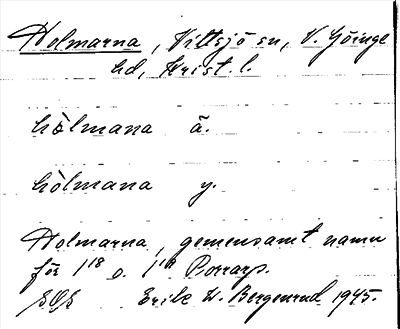 Holmarna, Vittsjö sn, V. Göinge
hd, Krist. l.
hòlmana ä.
hòlmana y.
Holmarna, gemensamt namn
för 1¹⁸ o. 1¹⁹ Borrarp.
Erik W. Bergenrud 1945.